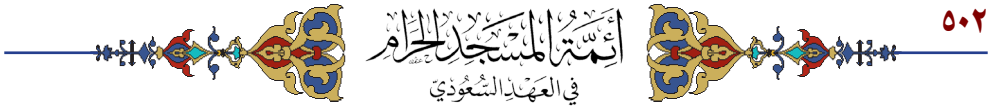 ٥٠٢
أَئِمَّةُ المَسْجِدِ الحَرَامِ
فِي العَهْدِ السُّعُودِيِّ